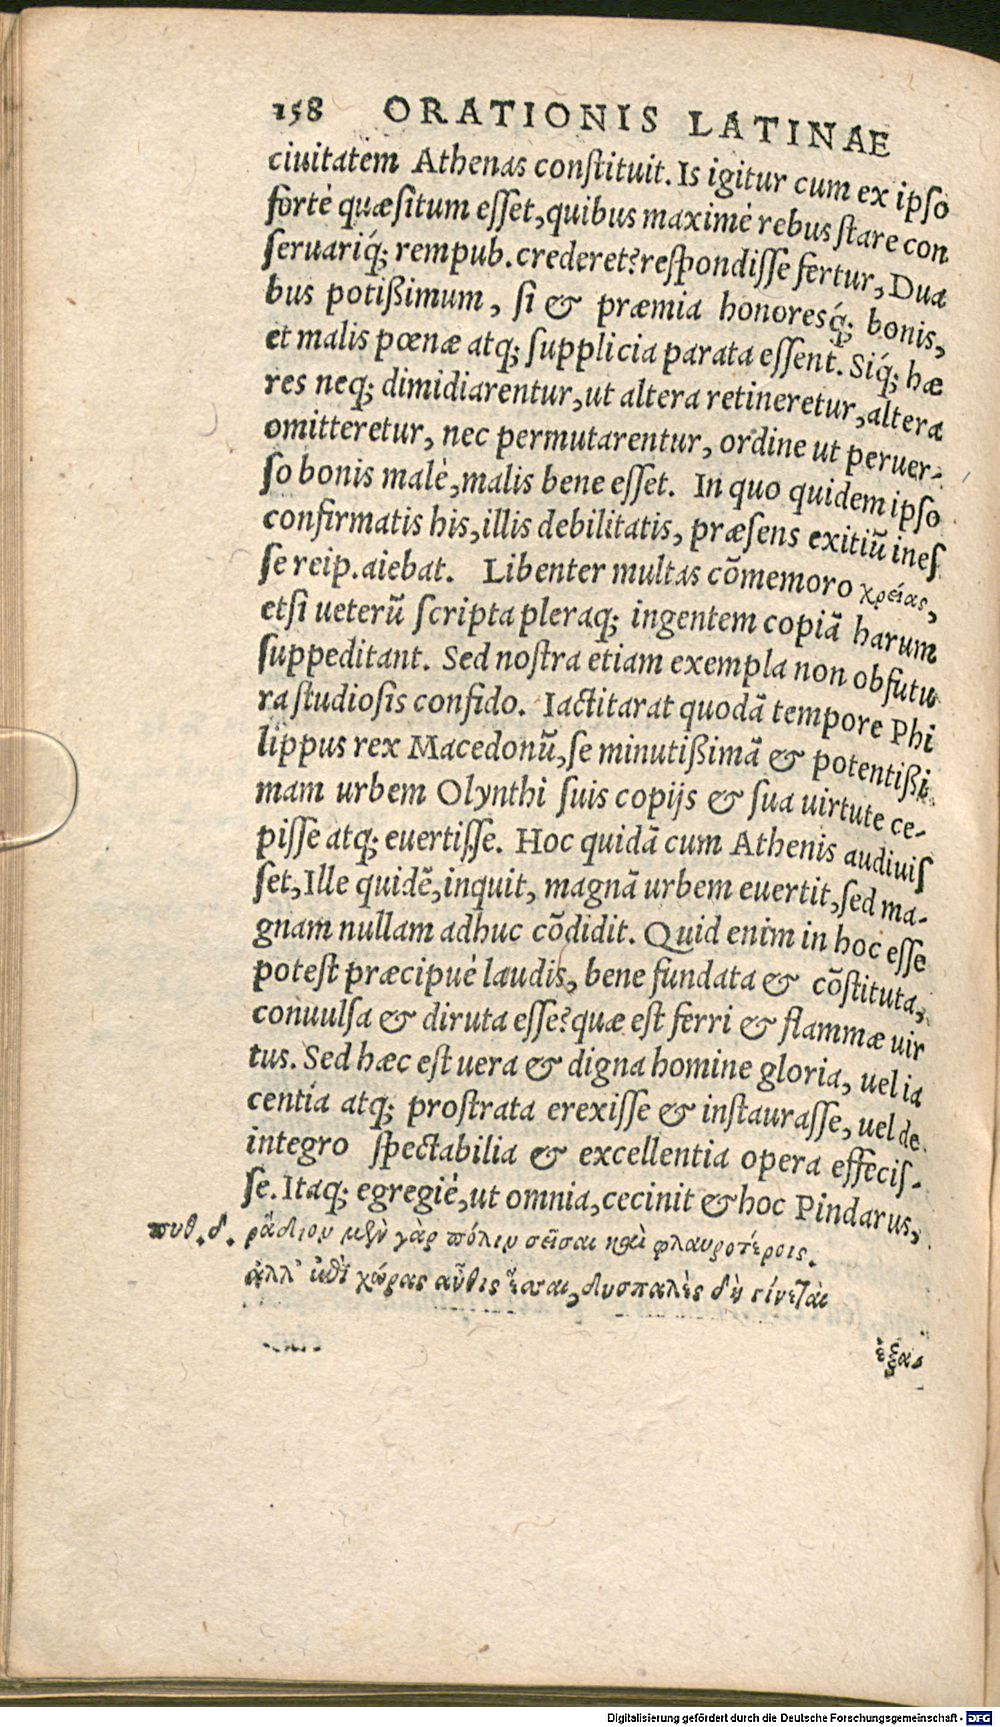 158 ORATIONIS LATINAE
ciuitatem Athenas conſtituit. Is igitur cum ex ipſo
forté quæſitum eſſet, quibus maximé rebus ſtare con
ſeruariq́; rempub. crederet? reſpondiſſe fertur, Dua
bus potißimum, ſi & præmia honoresq́; bonis,
et malis pœnæ atq; ſupplicia parata eſſent. Siq́; hæ
res neq; dimidiarentur, ut altera retineretur, altera
omitteretur, nec permutarentur, ordine ut peruer-
ſo bonis malè, malis bene eſſet. In quo quidem ipſo
confirmatis his, illis debilitatis, præſens exitiũ ineſ
ſe reip. aiebat. Libenter multas cõmemoro χρείας,
etſi ueterũ ſcripta pleraq; ingentem copiã harum
ſuppeditant. Sed noſtra etiam exempla non obfutu
ra ſtudioſis confido. Iactitarat quodã tempore Phi
lippus rex Macedonũ, ſe minutißimã & potentißi
mam urbem Olynthi ſuis copijs & ſua uirtute ce-
piſſe atq; euertiſſe. Hoc quidã cum Athenis audiuiſ
ſet, Ille quidẽ, inquit, magnã urbem euertit, ſed ma-
gnam nullam adhuc cõdidit. Quid enim in hoc eſſe
poteſt præcipué laudis, bene fundata & cõſtituta,
conuulſa & diruta eſſe? quæ eſt ferri & flammæ uir
tus. Sed hæc eſt uera & digna homine gloria, uel ia
centia atq; proſtrata erexiſſe & inſtauraſſe, uel de
integro ſpectabilia & excellentia opera effeciſ-
ſe. Itaq; egregié, ut omnia, cecinit & hoc Pindarus,
πυθ. δ. ῥᾴδιον μὲν γὰρ πόλιν σεῖσαι καὶ φλαυροτέροις.
ἀλλ' ἐπὶ χώρας αὖθις ἕσσαι, δυσπαλὲς δὴ γίνεται
ἐξα-